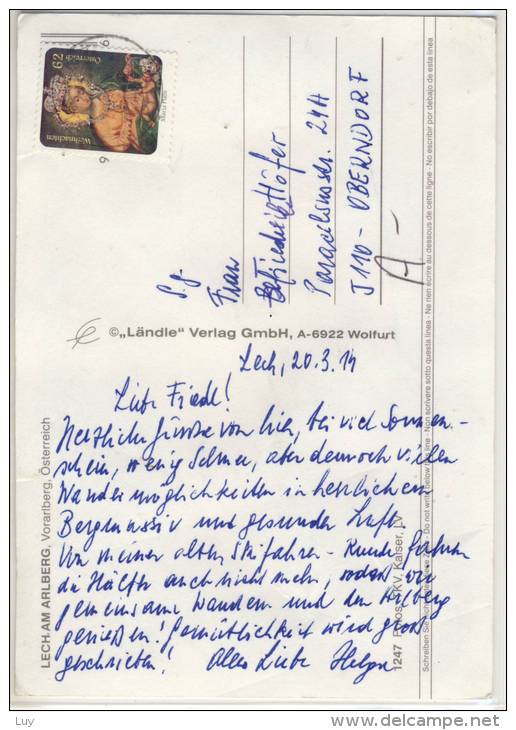 62
Österreich
Weihnachten
S.g.
Frau
Friederike Höfer
Paracelsusstr. 24A
5110 - OBERNDORF
A -
©„Ländle" Verlag GmbH, A-6922 Wolfurt
Lech, 20.3.14
Liebe Friedl!
Herzliche Grüsse von hier, bei viel Sonnen-
schein, wenig Schnee, aber dennoch vielen
Wandermöglichkeiten in herrlichem
Bergmassiv und gesunder Luft.
Von meiner alten Skifahrer-Runde fahren
die Hälfte auch nicht mehr, sodass wir
gemeinsam wandern und den Arlberg
genießen! Gemütlichkeit wird groß
geschrieben! Alles Liebe Helga
LECH AM ARLBERG, Vorarlberg, Österreich
1247 Fotos: KV, Kaiser, LV
Schreiben Sie nicht - Do not write below this line - Non scrivere sotto questa linea - Ne rien ecrire au dessous de cette ligne - No escribir por debajo de esta linea
Luy
delcampe.net